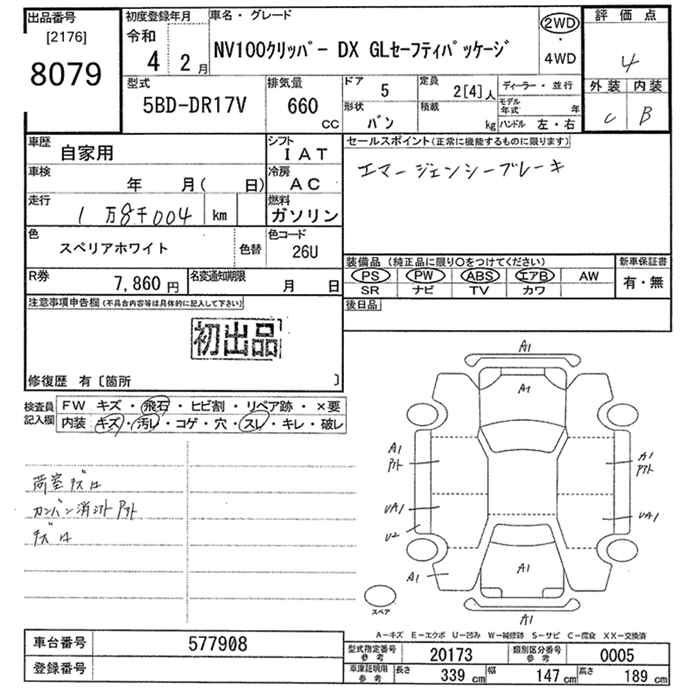 出品番号
[2176]
8079
初度登録年月
令和
4 2月
車名・グレード
NV100クリッパー DX GLセーフティパッケージ
2WD
・
4WD
評価点
4
外装 内装
C B
型式
5BD-DR17V
排気量
660
CC
ドア
5
定員
2[4]人
形状
バン
積載
kg
ディーラー・並行
モデル年式 年
ハンドル 左・右
車歴
自家用
シフト
IAT
車検
年 月( 日)
冷房
AC
走行
1万8千004 km
燃料
ガソリン
色
スペリアホワイト
色替
色コード
26U
R券
7,860円
名変通知期限
月 日
セールスポイント(正常に機能するものに限ります)
エマージェンシーブレーキ
装備品(純正品に限り○をつけてください)
PS PW ABS エアB AW
SR ナビ TV カワ
新車保証書
有・無
後日品
注意事項申告欄(不具合内容等は具体的に記入して下さい)
初出品
修復歴 有〔箇所 〕
検査員記入欄
FW キズ・飛石・ヒビ割・リペア跡・×要
内装 キズ・汚レ・コゲ・穴・スレ・キレ・破レ
荷室キズ
カンバン消シアト
キズ
A1
A1
A1
アト
A1
アト
UA1
U2
UA1
A1
A1
A1
スペア
A-キズ E-エクボ U-凹み W-補修跡 S-サビ C-腐食 XX-交換済
車台番号
577908
登録番号
型式指定番号
参考
20173
類別区分番号
参考
0005
車庫証明用
参考
長さ
339 cm
幅
147 cm
高さ
189 cm